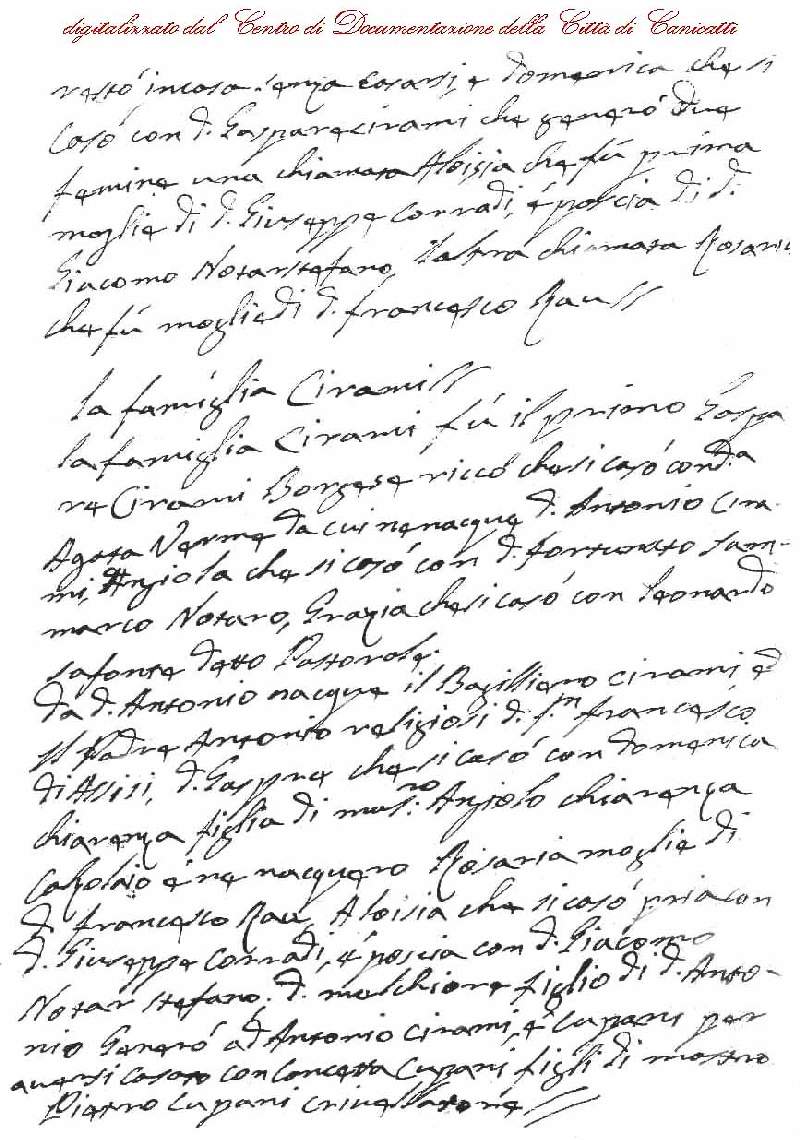 digitalizzato dal Centro di Documentazione della Città di Canicattì
restò in casa senza casarsi, e domenica che si
casò con d. Gaspare cirami che generò due
femine una chiamata Aloisia che fù prima
moglie di d. Giuseppe Corradi, e poscia di d.
Giacomo Notarstefano, l'altra chiamata Rosaria
che fù moglie di d. francesco Rau//
la famiglia Cirami//
la famiglia Cirami fù il primo Gaspa
re Cirami Borgese riccò che si casò con d.a
Agata Verme da cui ne nacque d. Antonio Cira-
mi, Anjola che si casò con d. fortunato Sam-
marco Notaro, Grazia che si casò con Leonardo
lafonte detto Pastorale.
da d. Antonio nacque il Basilliano cirami ed
il Padre Antonio religiosi di francesco
di Assisi, d. Gaspare che si casò con domenica
chiarenza figlia di mas.ro Anjolo chiarenza
Calzolaio e ne nacquero Rosaria moglie di
d. francesco Rau, Aloisia che si casò pria con
d. Giuseppe Corradi, e poscia con d. Giacomo
Notar stefano. d. melchiore figlio di d. Anto-
nio Generò ad Antonio cirami, e Cupani per
aversi casato con Concetta Cupani figli di mastro
Pietro Cupani crivellatore//